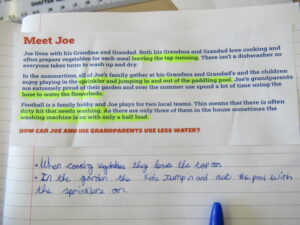 Meet Joe
Joe lives with his Grandma and Grandad. Both his Grandma and Grandad love cooking and
often prepare vegetables for each meal leaving the tap running. There isn't a dishwasher so
everyone takes turns to wash up and dry.
In the summertime, all of Joe's family gather at his Grandma and Grandad's and the children
enjoy playing in the sprinkler and jumping in and out of the paddling pool. Joe's grandparents
are extremely proud of their garden and over the summer use spend a lot of time using the
hose to water the flowerbeds.
Football is a family hobby and Joe plays for two local teams. This means that there is often
dirty kit that needs washing. As there are only three of them in the house sometimes the
washing machine is on with only a half load.
HOW CAN JOE AND HIS GRANDPARENTS USE LESS WATER?
• When cooking vegtables they leave the tap on
• In the garden the kids jump in and out the pool with
the sprinklers on.